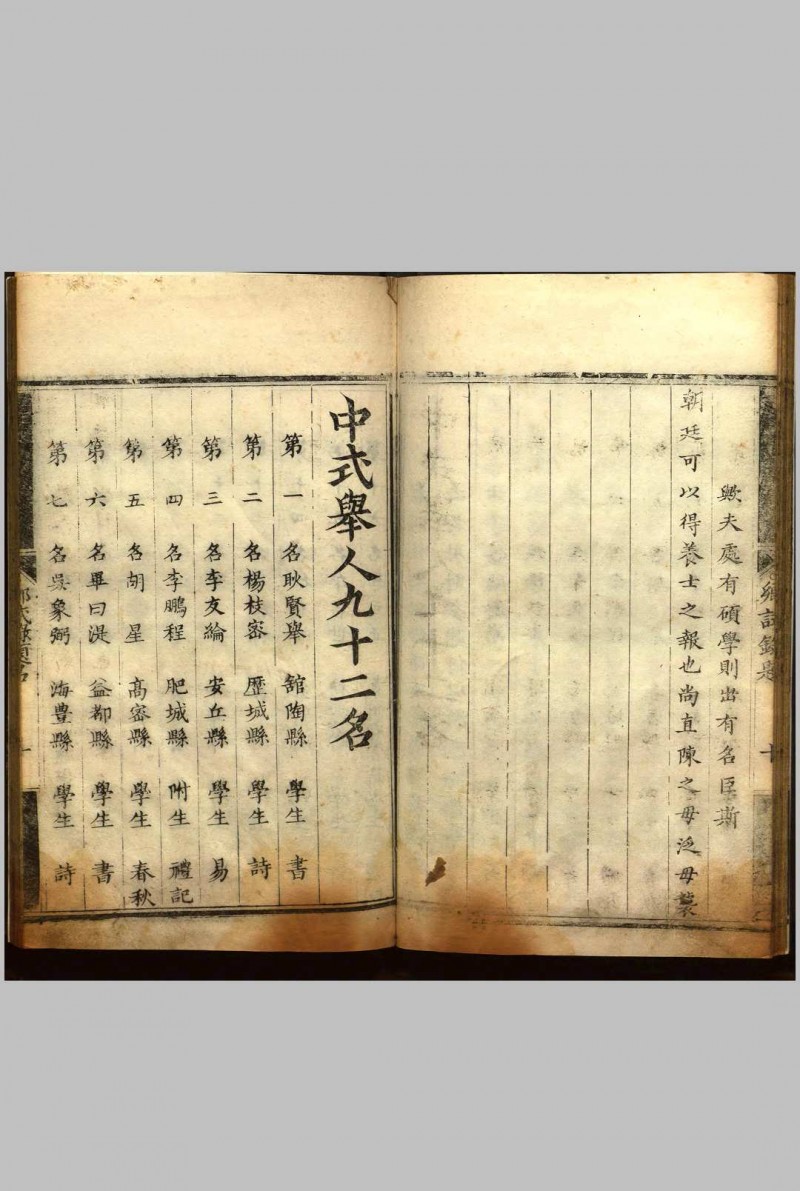 歟夫處有碩學則出有名臣斯
朝廷可以得養士之報也尚直陳之毋泛毋褻
中式舉人九十二名
第一名耿賢舉 舘陶縣 學生 書
第二名楊枝密 歷城縣 學生 詩
第三名李友綸 安丘縣 學生 易
第四名李鵬程 肥城縣 附生 禮記
第五名胡星 高密縣 學生 春秋
第六名畢曰湜 益都縣 學生 書
第七名吳象弼 海豊縣 學生 詩